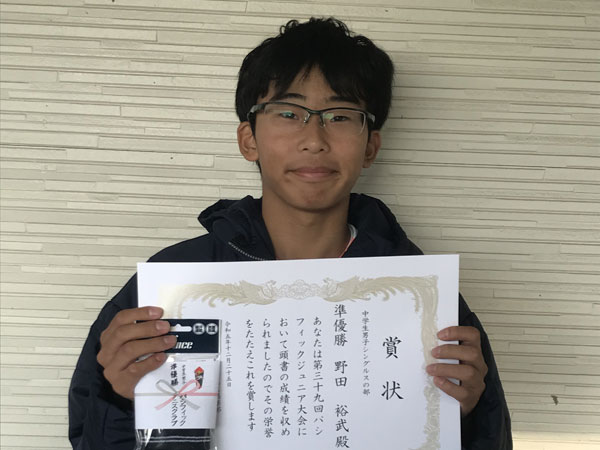 賞状
中学生男子シングルスの部
準優勝 野田 裕武殿
あなたは第三十九回パシ
フィックジュニア大会に
おいて頭書の成績を収め
られましたのでその栄誉
をたたえこれを賞します
令和五年十二月二十五日
準優勝